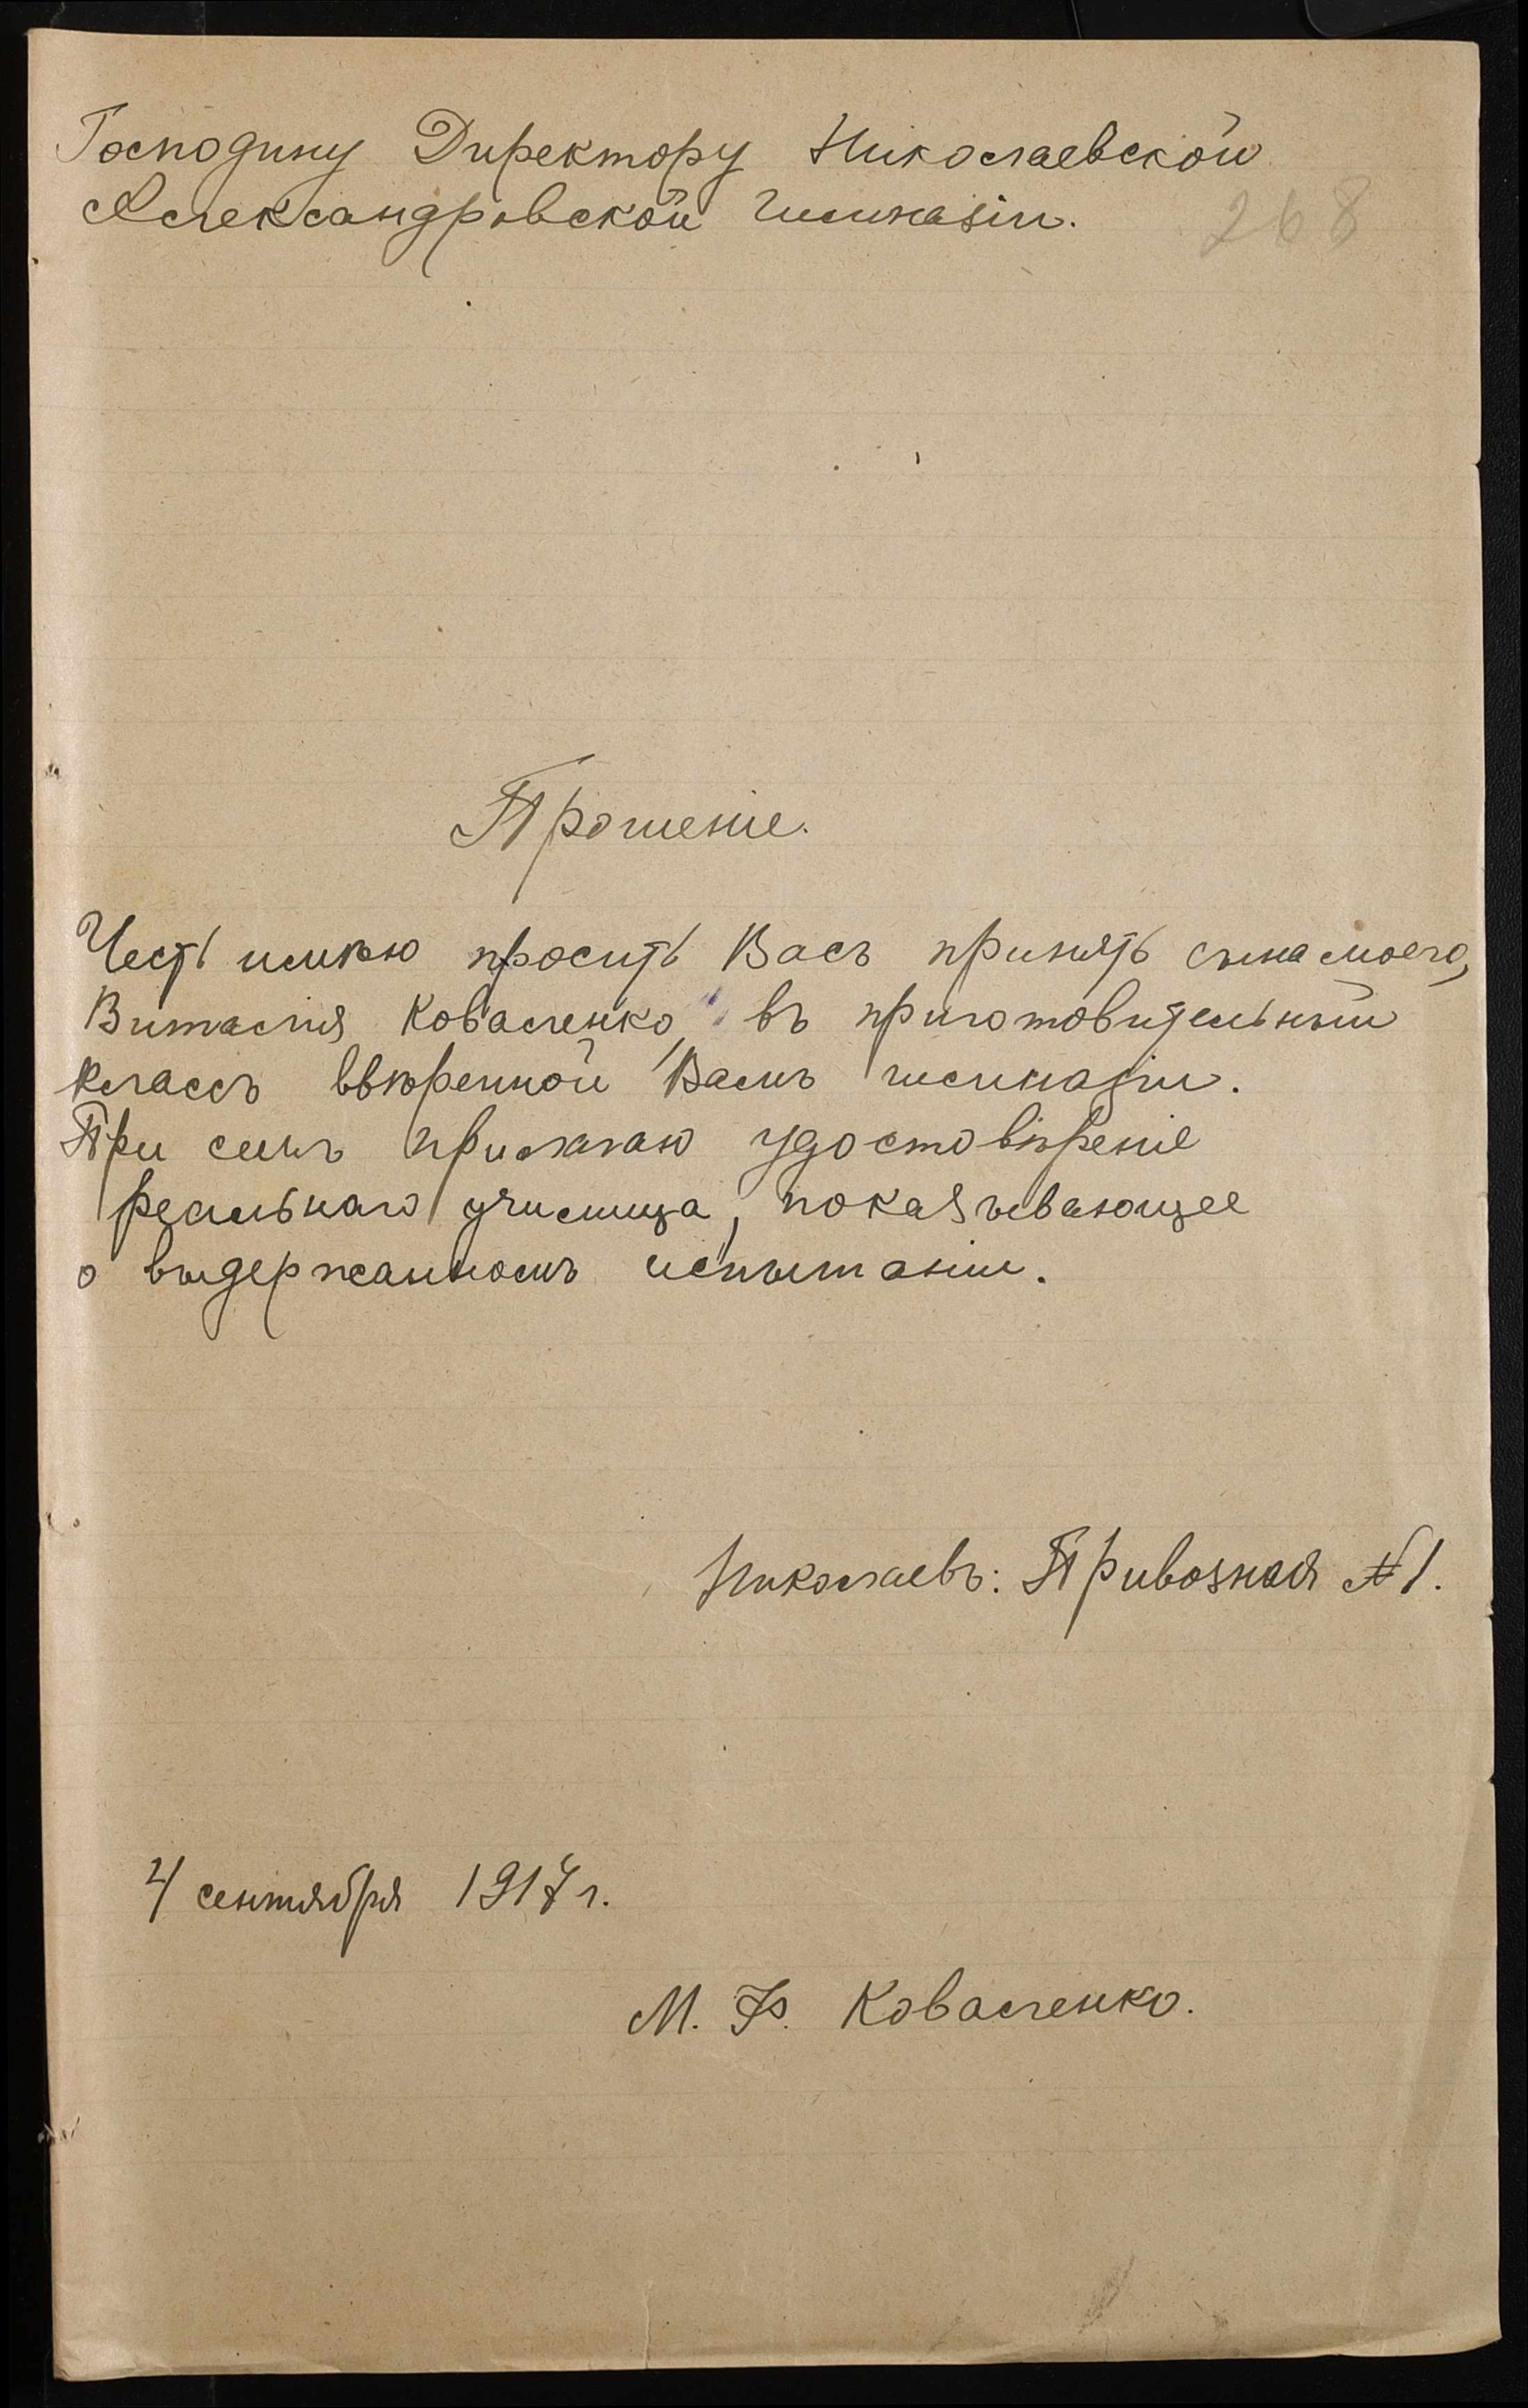 Господину Директору Николаевской
Александровской гимназіи.
268
Прошеніе.
Честь имѣю просить Васъ принять сына моего,
Виталія Коваленко, въ приготовительный
классъ ввѣренной Вамъ гимназіи.
При семъ прилагаю удостовѣреніе
реальнаго училища, показывающее
о выдержанномъ испытаніи.
Николаевъ: Привозная №1.
4 сентября 1917 г.
М. Ф. Коваленко.